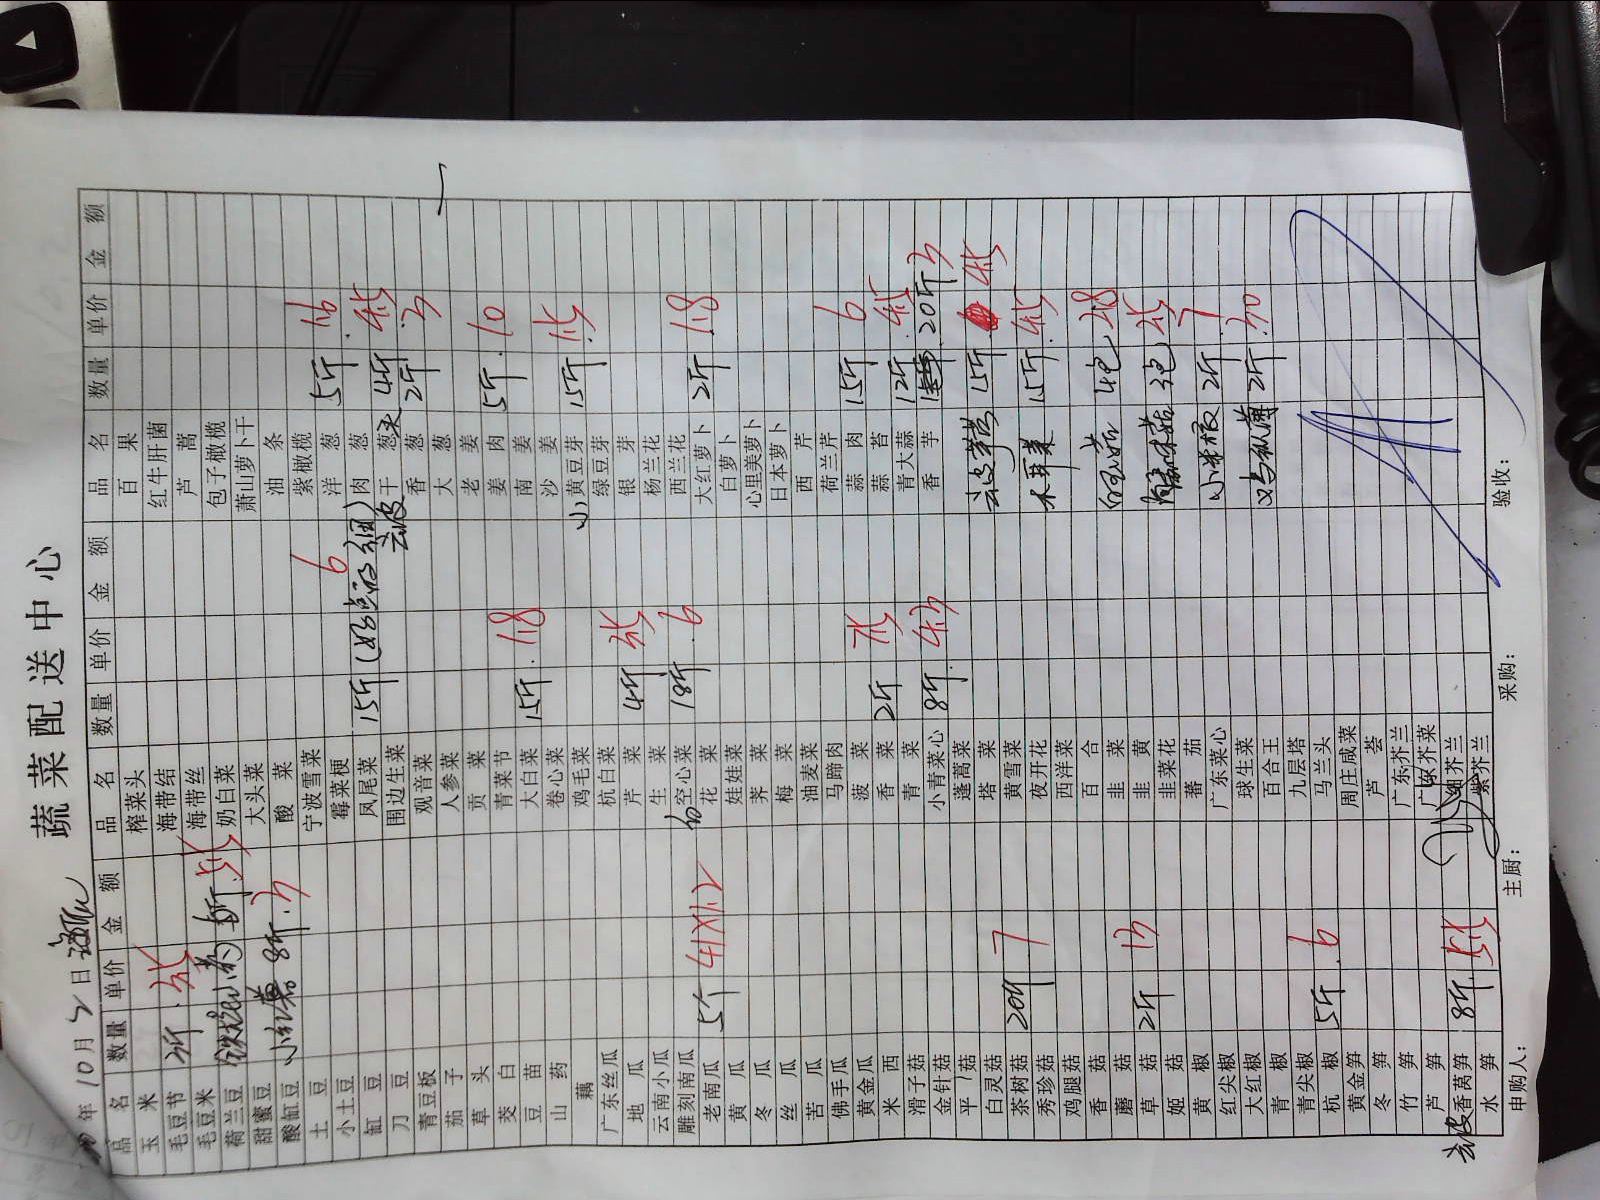 蔬菜配送中心
年10月2日
品名 数量 单价 金额 品名 数量 单价 金额 品名 数量 单价 金额
玉米 榨菜头 百果
毛豆节 海带结 红牛肝菌
毛豆米 海带丝 芦蒿
荷兰豆 奶白菜 包子橄榄
甜蜜豆 大头菜 萧山萝卜干
酸缸豆 8斤 3 酸菜 油条
土豆 宁波雪菜 紫橄榄
小土豆 霉菜梗 6 洋葱 5斤 1.6
缸豆 凤尾菜 15斤 肉葱 4斤
刀豆 围边生菜 去皮干葱 2斤 3
青豆板 观音菜 香葱
茄子 人参菜 大葱
草头 贡菜 老姜 5斤 10
茭白 青菜节 姜肉
豆苗 大白菜 15斤 1.8 南姜
山药 卷心菜 沙姜
藕 鸡毛菜 小黄豆芽 15斤
广东丝瓜 杭白菜 绿豆芽
地瓜 芹菜 4斤 银芽
云南小瓜 生菜 杨兰花
雕刻南瓜 空心菜 18斤 6 西兰花
老南瓜 5个 花菜 大红萝卜 2斤 1.8
黄瓜 娃娃菜 白萝卜
冬瓜 荠菜 心里美萝卜
丝瓜 梅菜 日本萝卜
苦瓜 油麦菜 西芹
佛手瓜 马蹄肉 荷兰芹
黄金瓜 菠菜 蒜肉 15斤 6
米西 香菜 2斤 蒜苔
滑子菇 青菜 青大蒜 12斤
金针菇 小青菜心 8斤 4.3 香芋 20斤 3
平菇 蓬蒿菜
白灵菇 塔菜 去皮莴笋 15斤
茶树菇 20斤 7 黄雪菜
秀珍菇 夜开花 木耳菜 15斤
鸡腿菇 西洋菜
香菇 百合 4包 2.8
蘑菇 韭菜
草菇 2斤 13 韭黄 3包
姬菇 韭菜花
黄椒 蕃茄 小米椒 2斤 7
红尖椒 广东菜心
大红椒 球生菜 2斤 30
青椒 百合王
青尖椒 九层塔
杭椒 5斤 6 马兰头
黄金笋 周庄咸菜
冬笋 芦荟
竹笋 广东芥兰
芦笋 广东芥菜
去皮香莴笋 8斤 细芥兰
水笋 紫芥兰
申购人： 主厨： 采购： 验收：